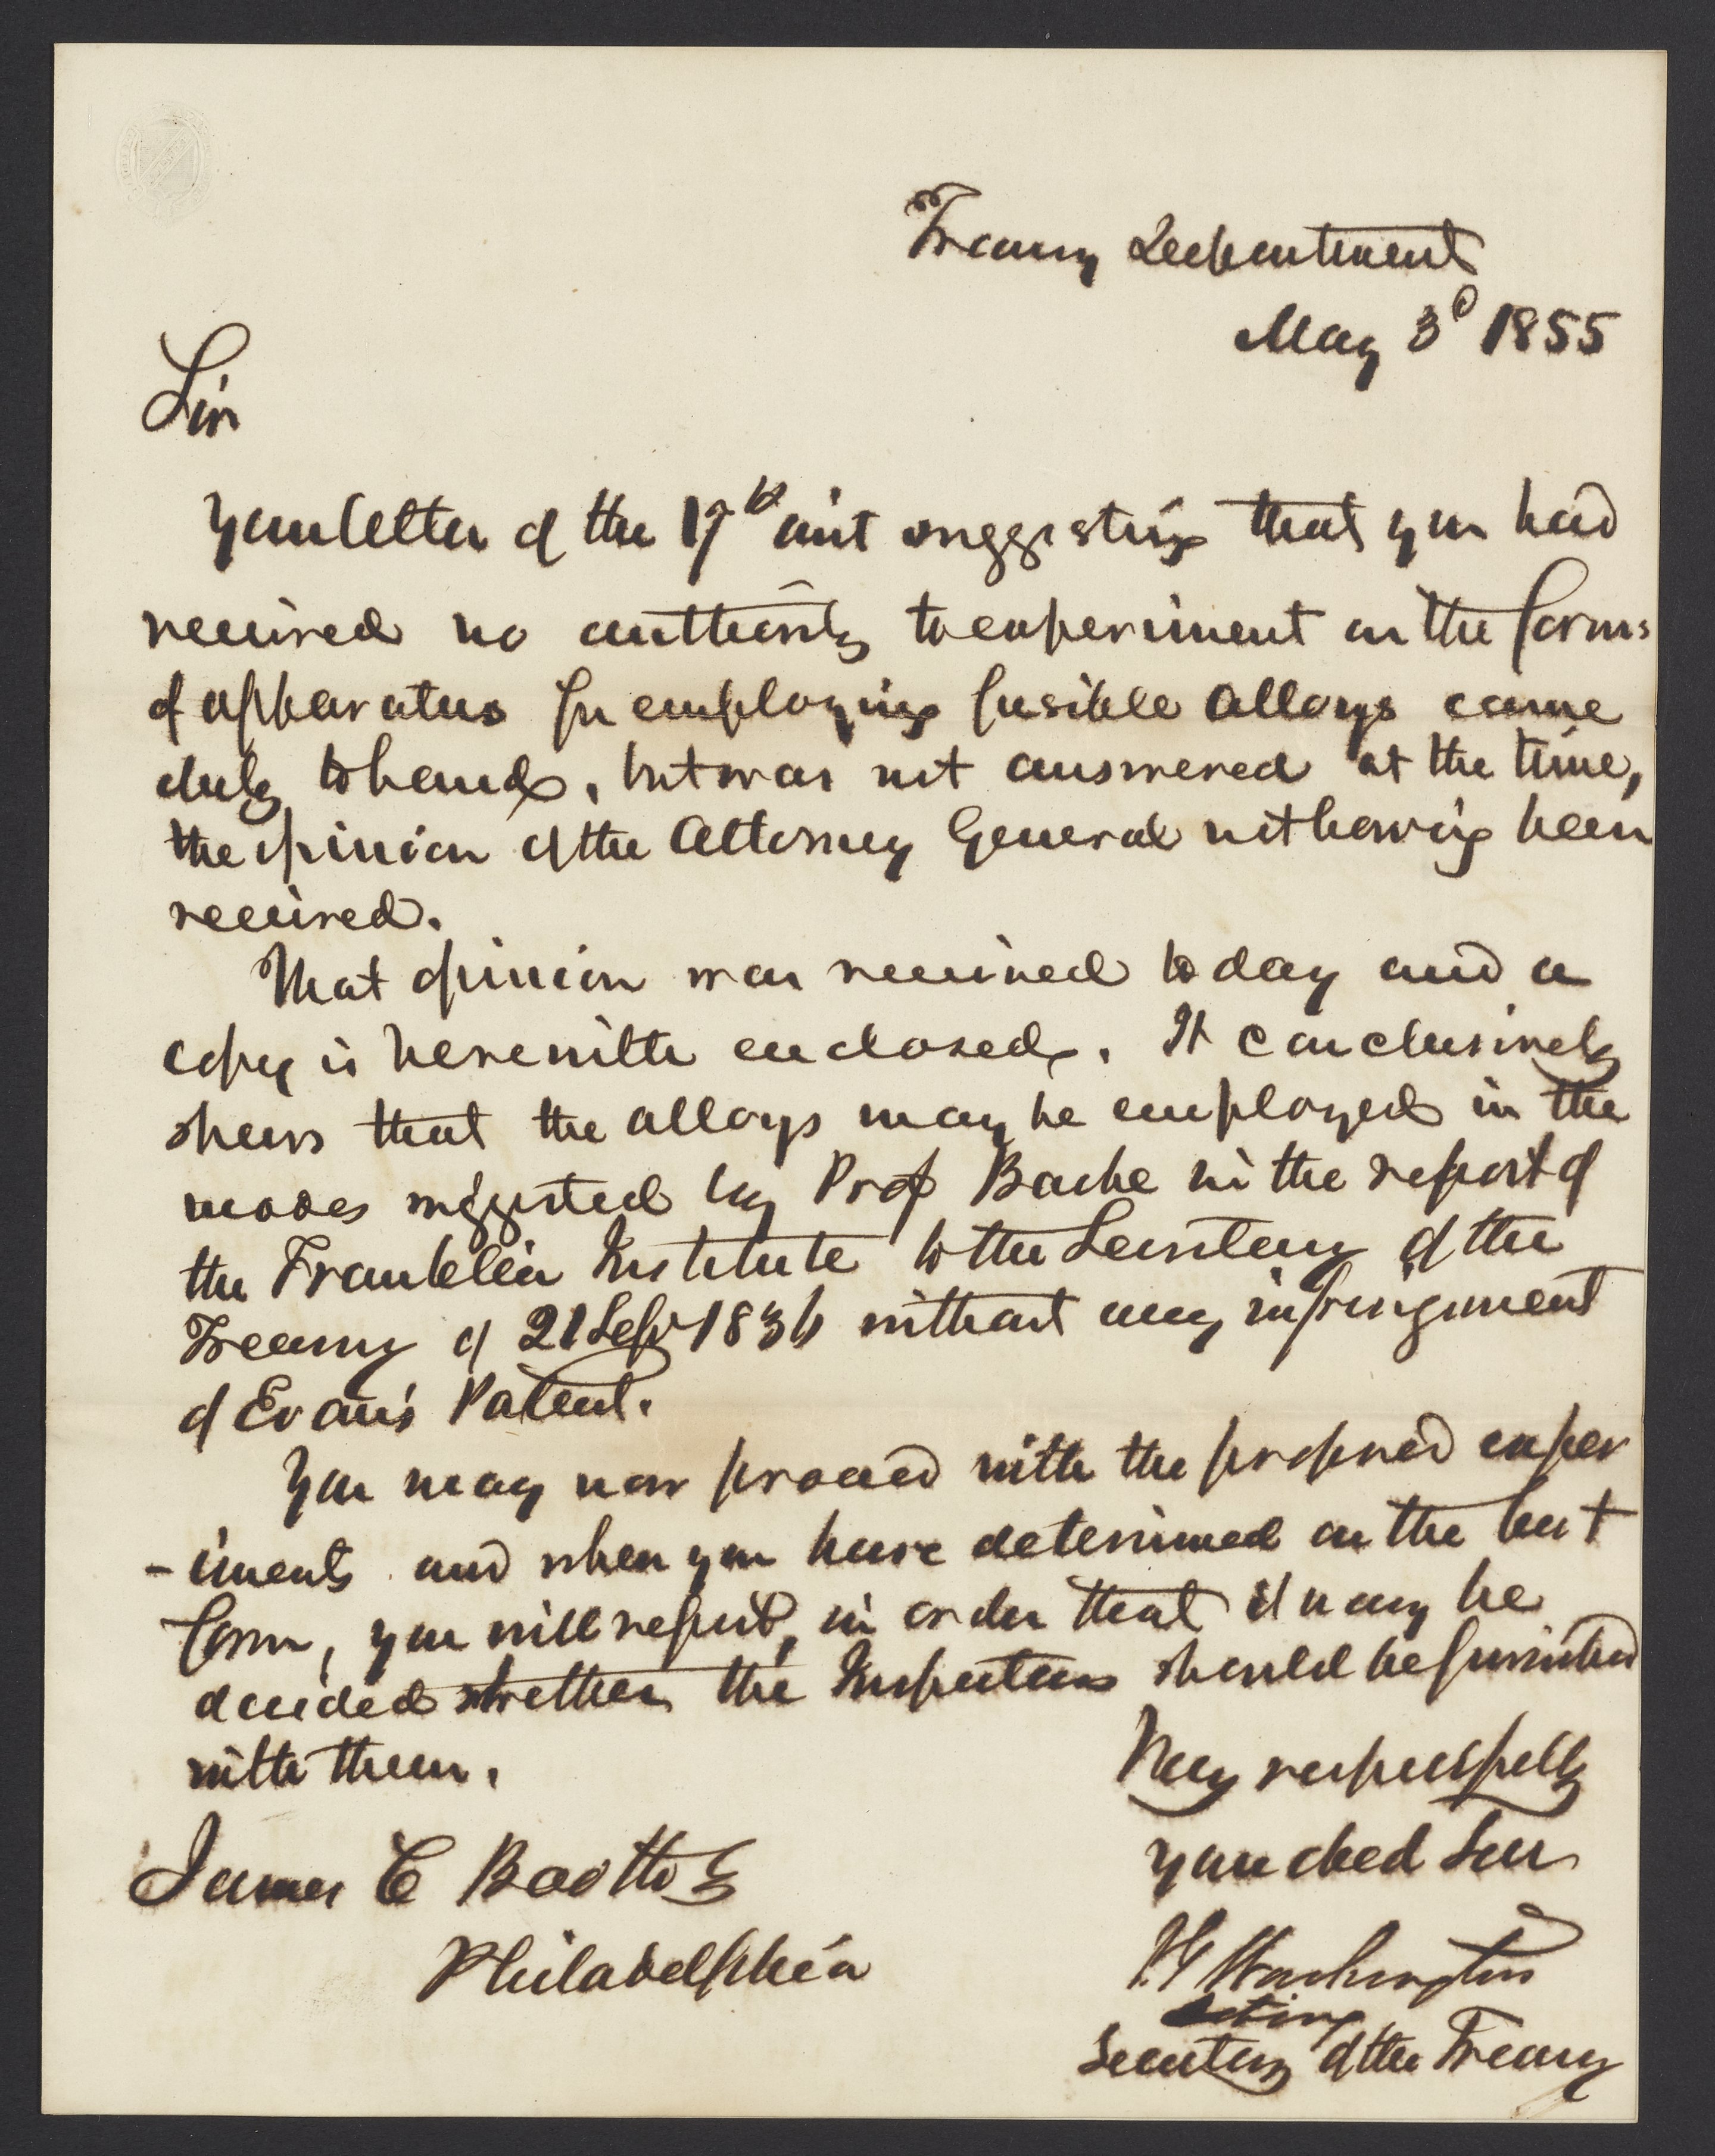 Treasury Department
May 3d 1855
Sir
Your letter of the 17th suggesting that you had
received no authority to experiment on the forms
of apparatus for employing fusible alloys came
duly to hand, but was not answered at the time,
the opinion of the Attorney General not having been
received.
That opinion was received today and a
copy is herewith enclosed. It conclusively
shews that the alloys may be employed in the
modes suggested by Prof Bache in the report of
the Franklin Institute to the Secretary of the
Treasury of 21 Sepr 1836 without any infringement
of Evans Patent.
You may now proceed with the proposed exper
-iments and when you have determined on the best
form, you will report, in order that it may be
decided whether the Inspectors should be furnished
with them.
Very respectfully
your obed Ser
P G Washington
Acting
Secretary of the Treasury
James C Booth
Philadelphia